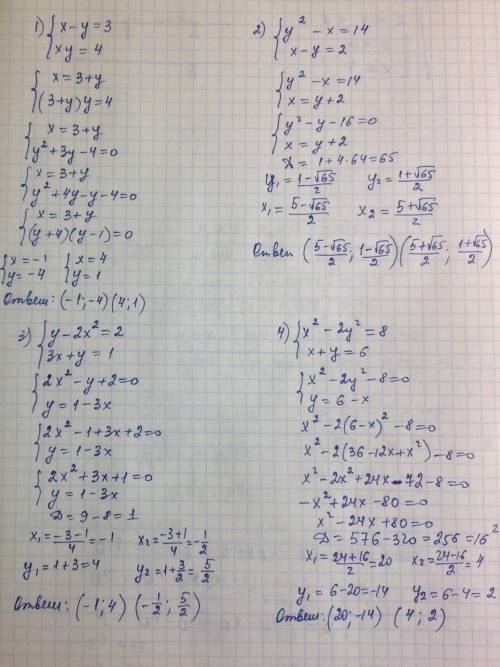 1) { x-y=3
xy=4
{ x=3+y
(3+y)y=4
{ x=3+y
y²+3y-4=0
{ x=3+y
y²+4y-y-4=0
{ x=3+y
(y+4)(y-1)=0
{ x=-1 { x=4
y=-4 y=1
Ответ: (-1;-4) (4;1)
2) { y²-x=14
x-y=2
{ y²-x=14
x=y+2
{ y²-y-16=0
x=y+2
D=1+4·64=65
y₁=(1-√65)/2 y₂=(1+√65)/2
x₁=(5-√65)/2 x₂=(5+√65)/2
Ответ ((5-√65)/2; (1-√65)/2) ((5+√65)/2; (1+√65)/2)
3) { y-2x²=2
3x+y=1
{ 2x²-y+2=0
y=1-3x
{ 2x²-1+3x+2=0
y=1-3x
{ 2x²+3x+1=0
y=1-3x
D=9-8=1
x₁=(-3-1)/4=-1 x₂=(-3+1)/4=-1/2
y₁=1+3=4 y₂=1+3/2=5/2
Ответ: (-1;4) (-1/2; 5/2)
4) { x²-2y²=8
x+y=6
{ x²-2y²-8=0
y=6-x
x²-2(6-x)²-8=0
x²-2(36-12x+x²)-8=0
x²-2x²+24x-72-8=0
-x²+24x-80=0
x²-24x+80=0
D=576-320=256=16²
x₁=(24+16)/2=20 x₂=(24-16)/2=4
y₁=6-20=-14 y₂=6-4=2
Ответ: (20;-14) (4;2)